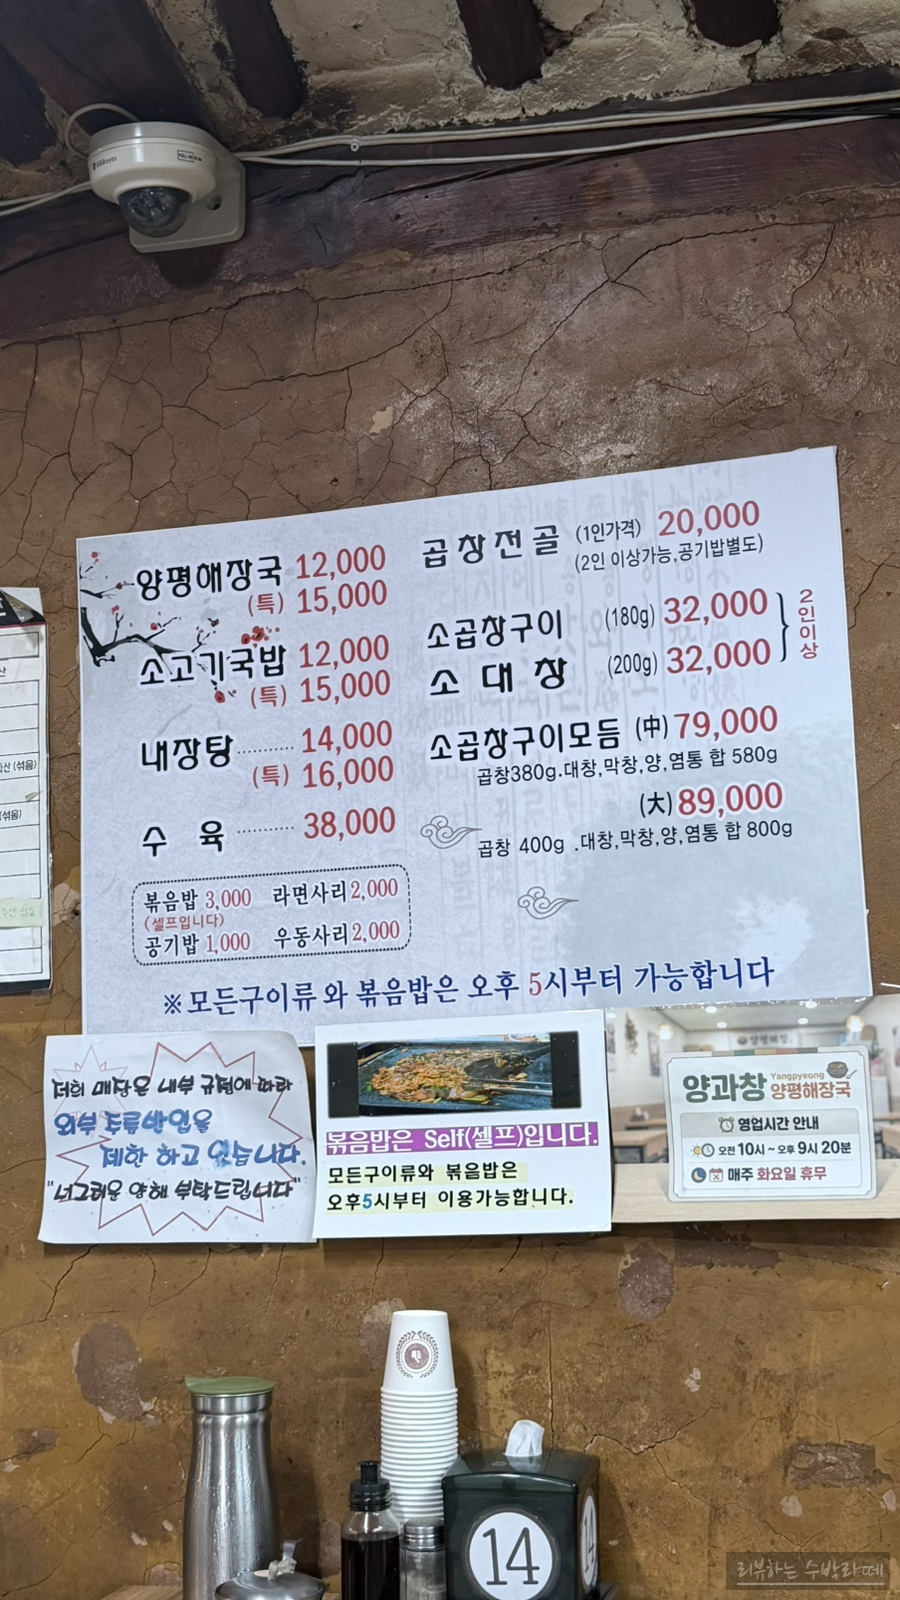 양평해장국 12,000
(특) 15,000
소고기국밥 12,000
(특) 15,000
내장탕 14,000
(특) 16,000
수육 38,000
볶음밥 3,000 라면사리 2,000
(셀프입니다)
공기밥 1,000 우동사리 2,000
곱창전골 (1인가격) 20,000
(2인 이상가능,공기밥별도)
소곱창구이 (180g) 32,000
소대창 (200g) 32,000
2인이상
소곱창구이모듬 (中) 79,000
곱창380g.대창,막창,양,염통 합 580g
(大) 89,000
곱창 400g .대창,막창,양,염통 합 800g
※모든구이류와 볶음밥은 오후 5시부터 가능합니다
저희 매장은 내부 규정에 따라
외부 주류반입을
제한 하고 있습니다.
"너그러운 양해 부탁드립니다"
볶음밥은 Self(셀프)입니다.
모든구이류와 볶음밥은
오후5시부터 이용가능합니다.
양과창 Yangpyeong 양평해장국
영업시간 안내
오전 10시 ~ 오후 9시 20분
매주 화요일 휴무
14
리뷰하는 수박라떼